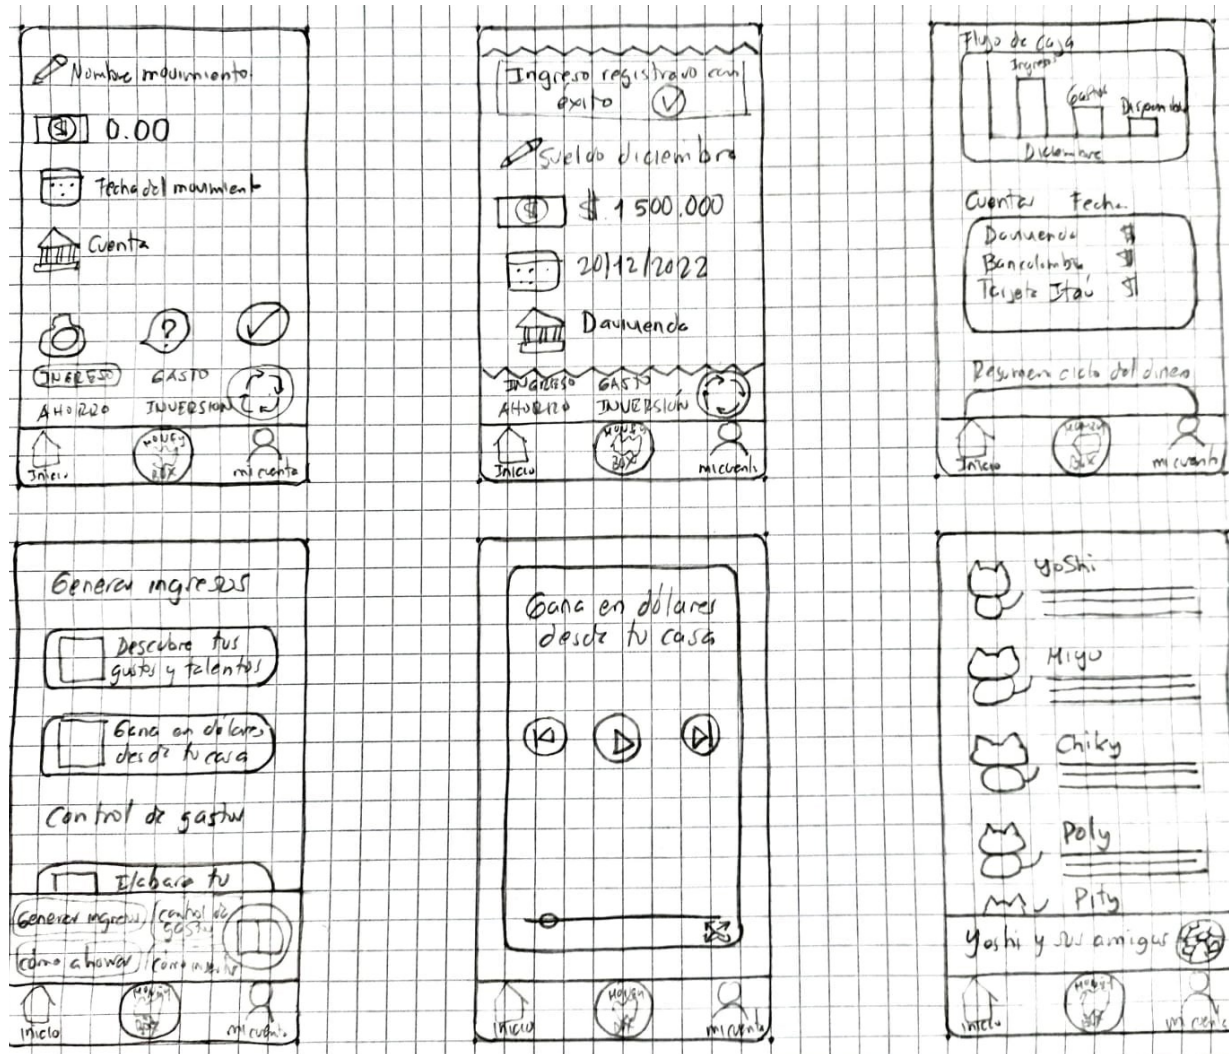 Nombre movimiento
$ 0.00
Fecha del movimiento
Cuenta
?
INGRESO GASTO
AHORRO INVERSION
Inicio MONEY BOX mi cuenta
Ingreso registrado con
éxito
Sueldo diciembre
$ $ 1 500.000
20/12/2022
Davivienda
INGRESO GASTO
AHORRO INVERSIÓN
Inicio MONEY BOX mi cuenta
Flujo de caja
Ingresos
Gastos
Disponible
Diciembre
Cuenta Fecha
Davivienda $
Bancolombia $
Tarjeta Itaú $
Resumen ciclo del dinero
Inicio MONEY BOX mi cuenta
Generar ingresos
Descubre tus
gustos y talentos
Gana en dólares
desde tu casa
Control de gastos
Elabora tu
Generar ingresos control de
gastos
cómo ahorrar cómo invertir
Inicio MONEY BOX mi cuenta
Gana en dólares
desde tu casa
Inicio MONEY BOX mi cuenta
Yoshi
Miyu
Chiky
Poly
Pity
Yoshi y sus amigos
Inicio MONEY BOX mi cuenta